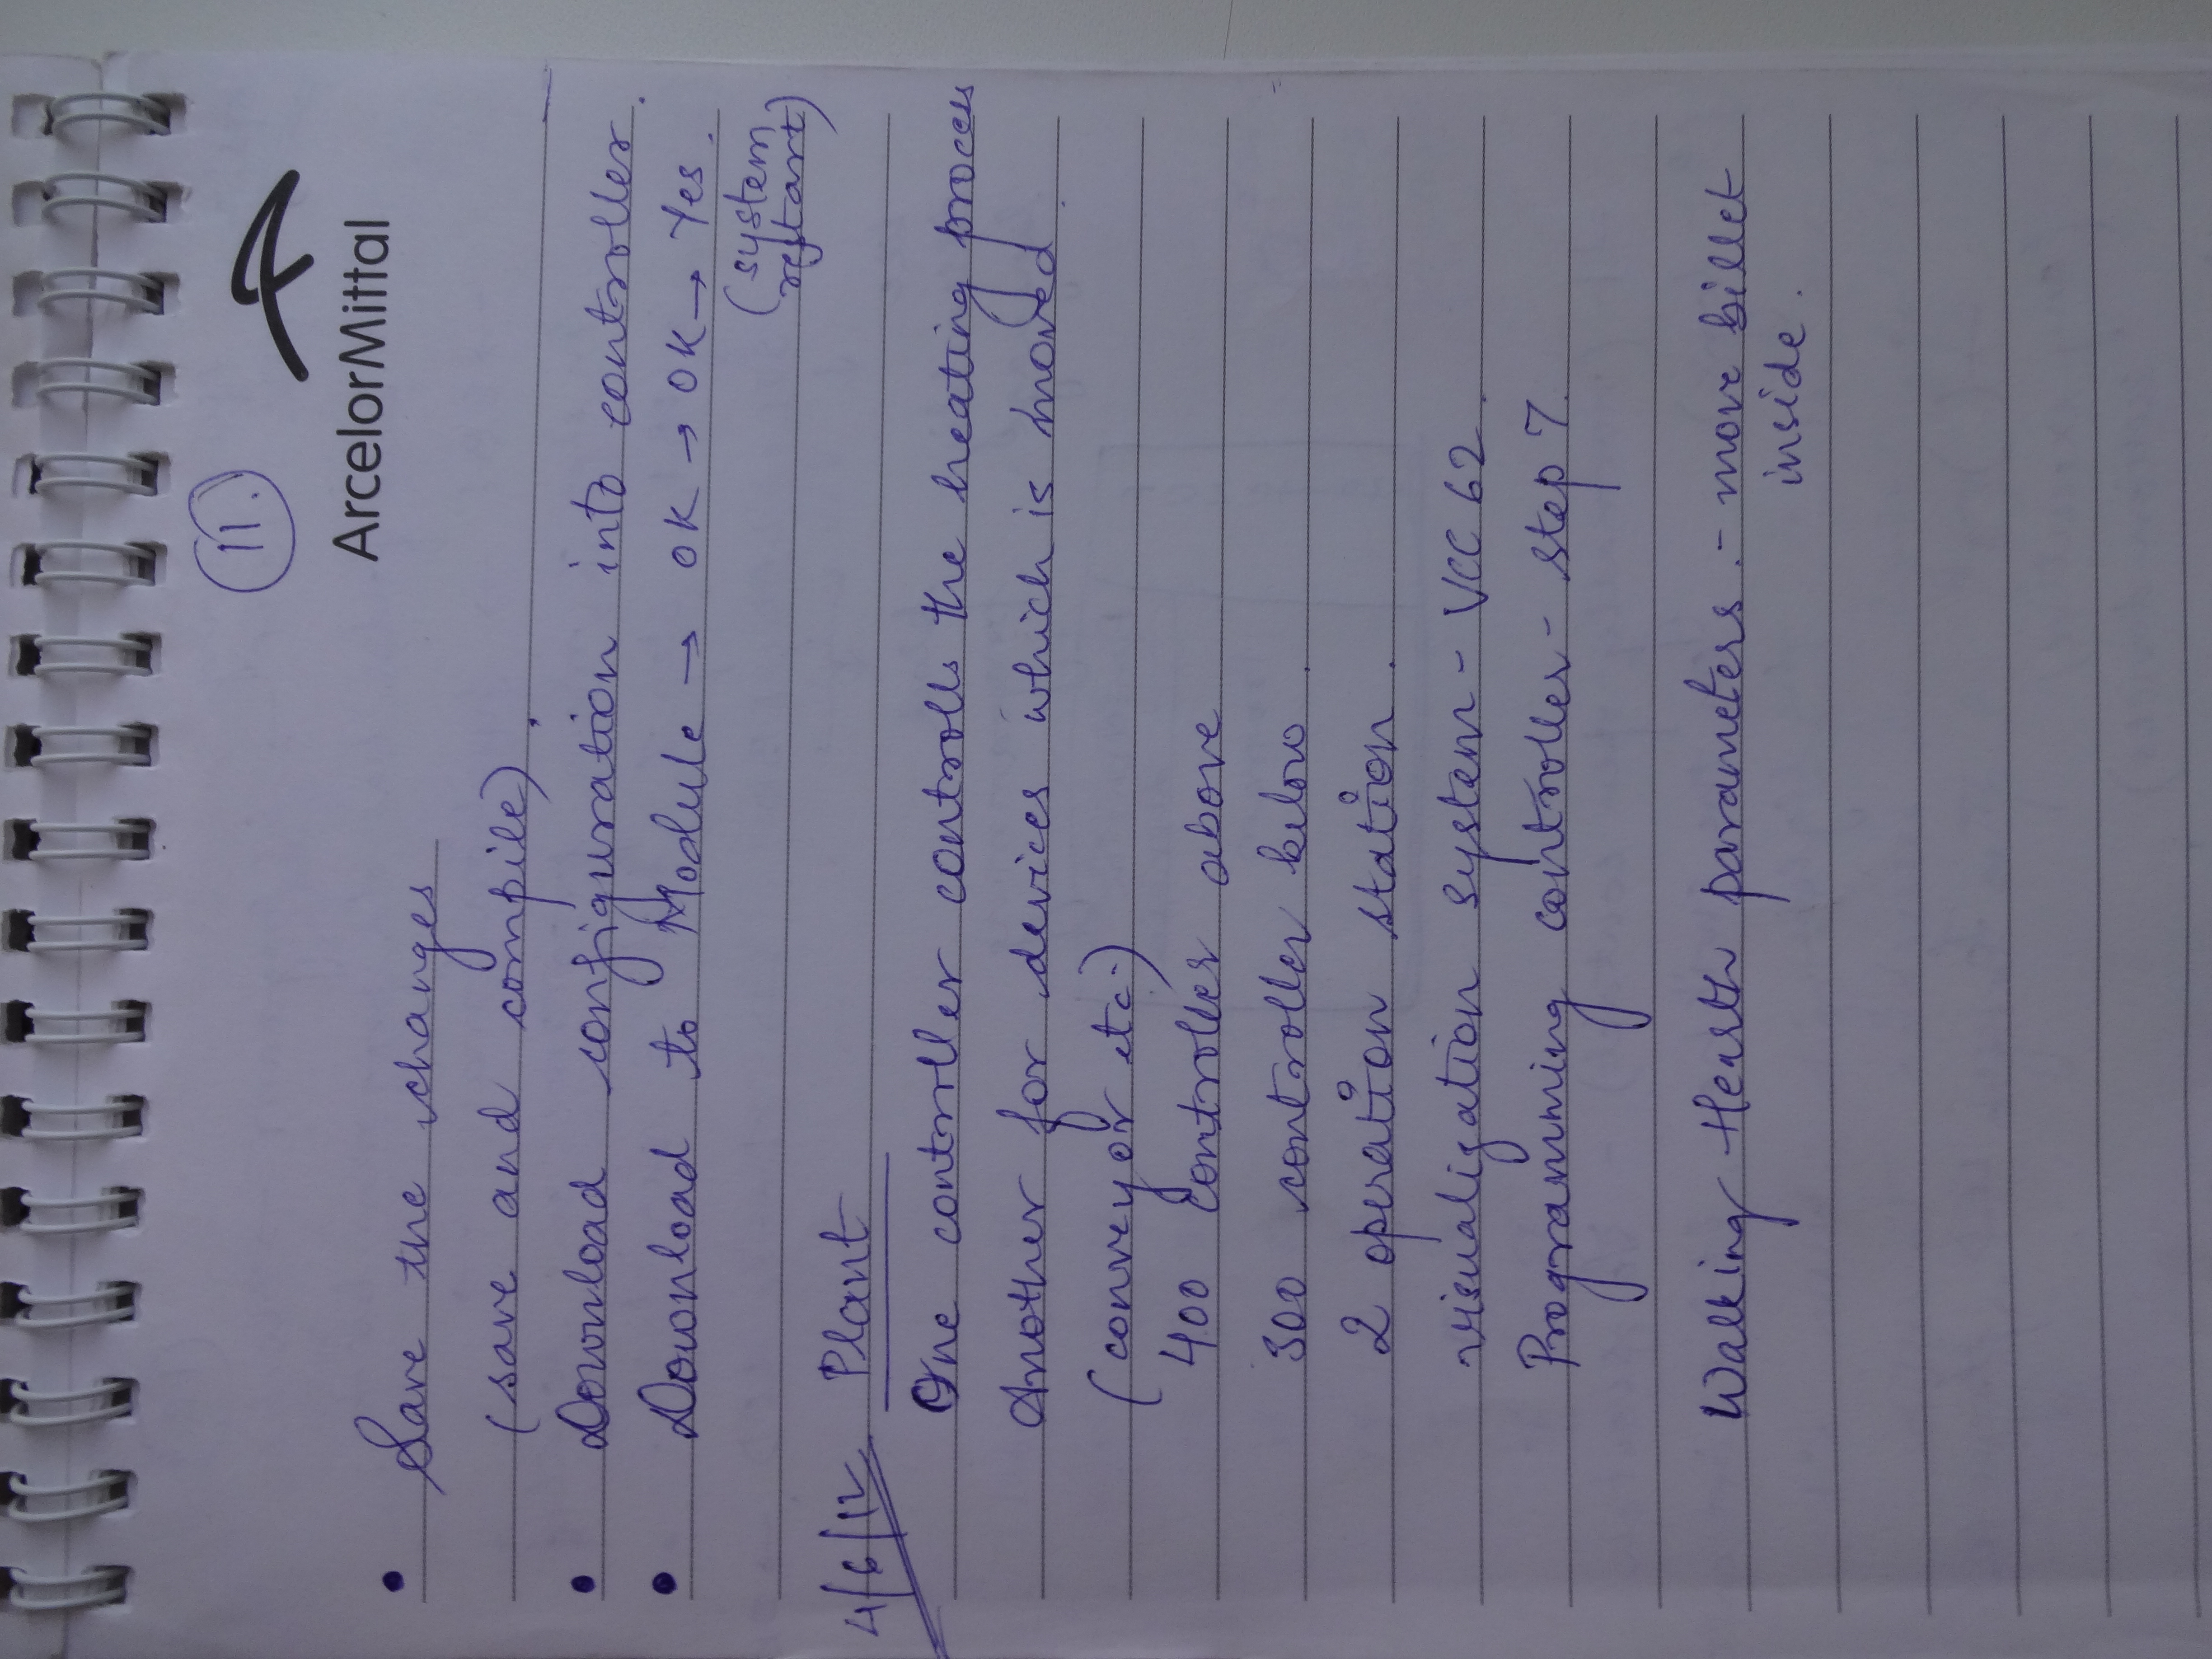 11.
ArcelorMittal
• Save the changes
(save and compile).
• Download configuration into controller.
• Download to Module → OK → OK → Yes.
(system
restart)
4/6/12 Plant
One controller controlls the heating process
Another for devices which is moved.
(conveyor etc.)
400 controller above
300 controller below.
2 operation station.
visualization system - VCC 62.
Programming controller - step 7.
Walking Hearth parameters. - move billet
inside.